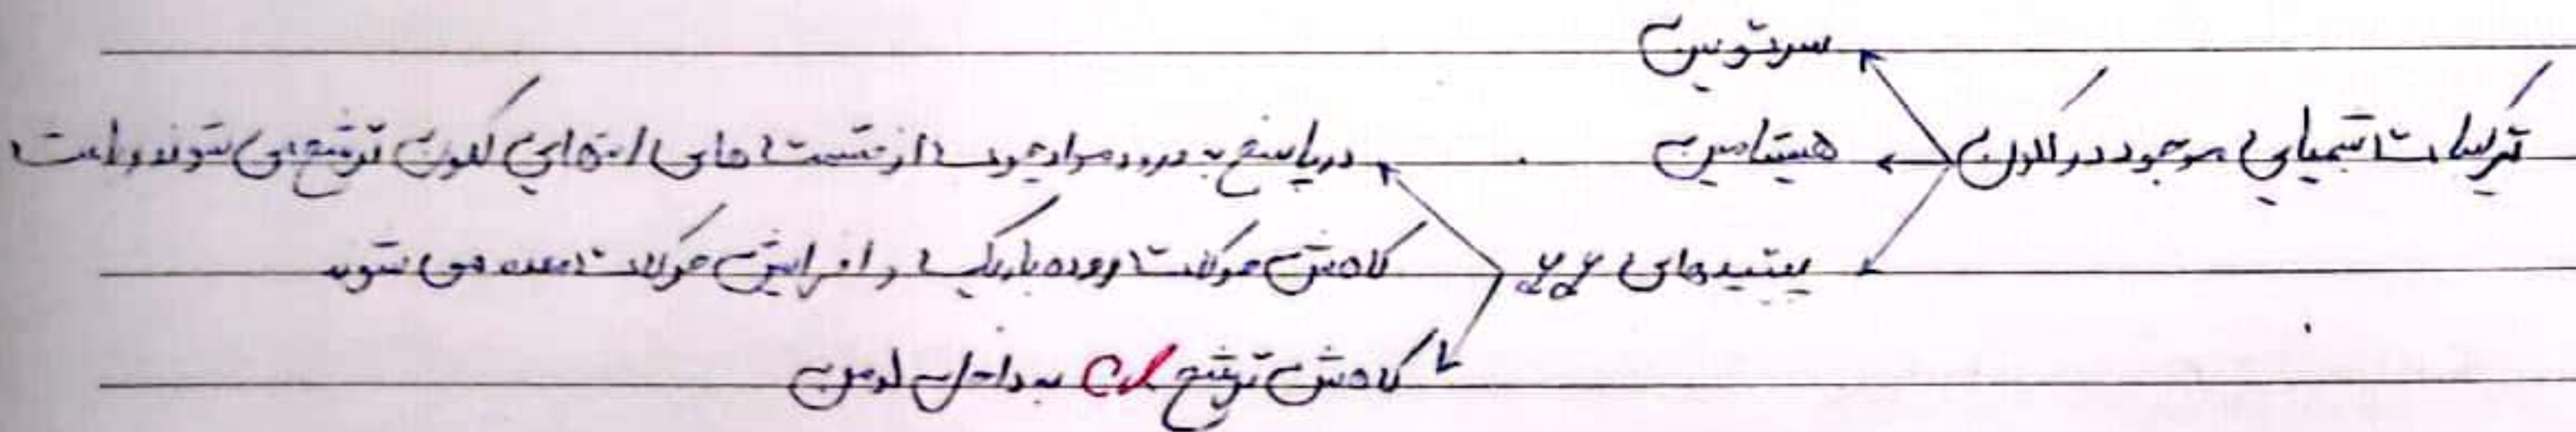 سروتونین
ترکیبات شیمیایی موجود در کولون
هیستامین
پپتیدهای YY
در پاسخ به ورود مواد چرب از قسمت های انتهایی کولون ترشح می شوند و باعث
کاهش حرکات روده باریک و افزایش حرکات معده می شوند
کاهش ترشح Cl به داخل لومن